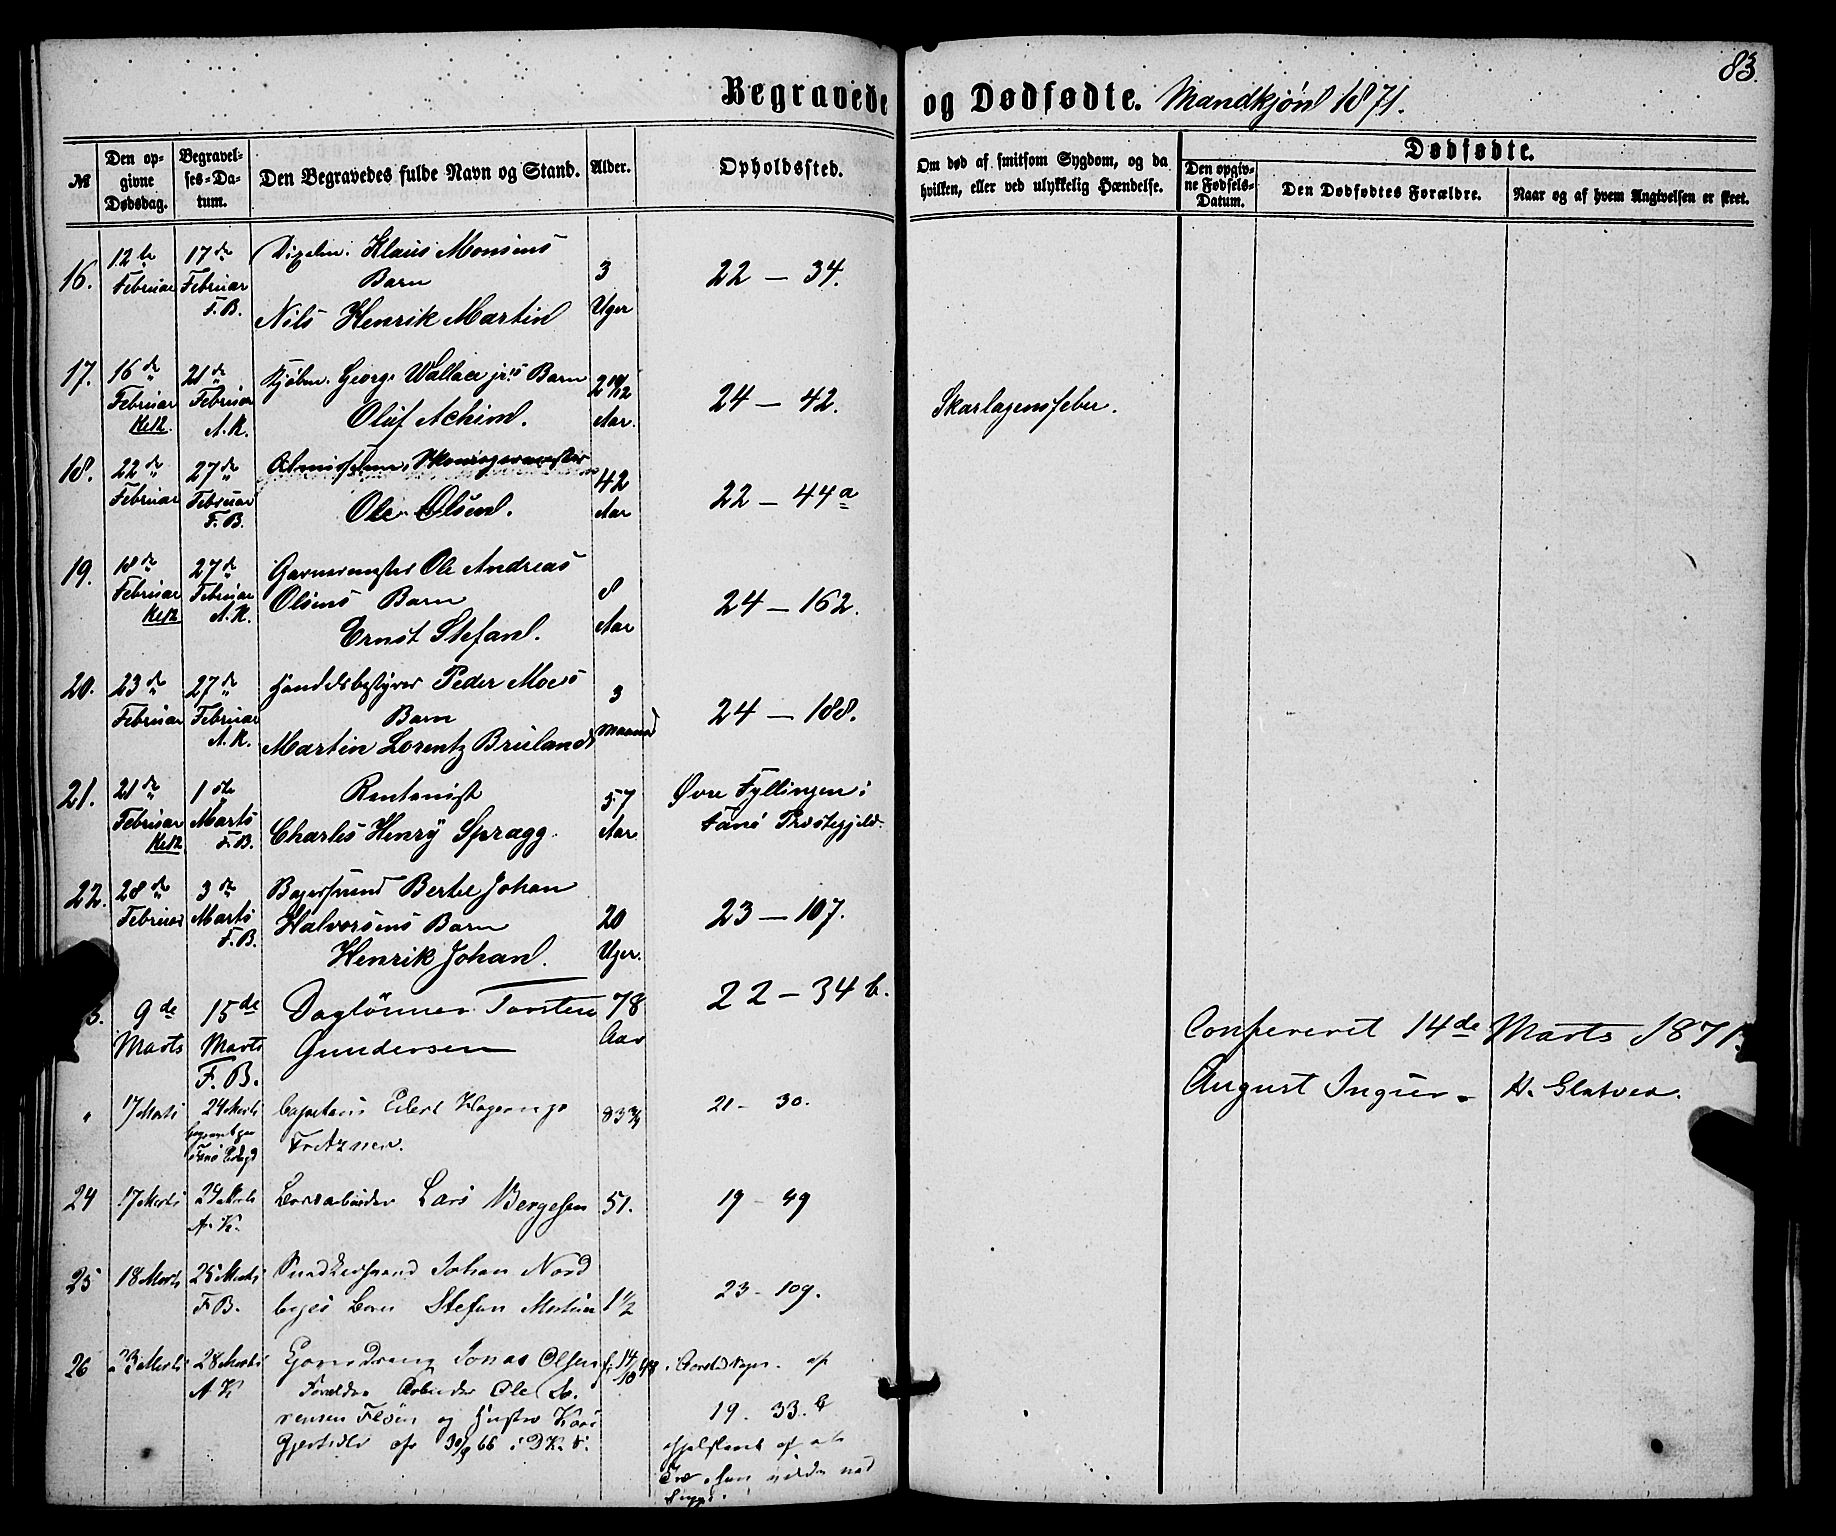 83.
Begravede og Dødfødte. Mandkjøn 1871.
№
Den opgivne Dødsdag.
Begravelses-Datum.
Den Begravedes fulde Navn og Stand.
Alder.
Opholdssted.
Om død af smitsom Sygdom, og da hvilken, eller ved ulykkelig Hændelse.
Dødfødte.
Den opgivne Fødsels-Datum.
Den Dødfødtes Forældre.
Naar og af hvem Angivelsen er skeet.
16. 12te Februar 17de Februar F.B.
Klaus Monsens
Barn
Nils Henrik Martin
3 Uger
22 – 34.
17. 16de Februar 21de Februar A.K.
Kjøbm. George Wallace jr's Barn
Oluf Achim.
2 10/12 Aar.
24 – 42.
Skarlagensfeber.
18. 22de Februar 27de Februar F.B.
Ole Olsen.
42 Aar
22 – 44a
19. 18de Februar 27de Februar A.K.
Garvermester Ole Andreas
Olsens Barn
Ernst Stefan.
8 Aar
24 – 162.
20. 23de Februar 27de Februar A.K.
Handelsbestyrer Peder Moes
Barn
Martin Lorentz Bruland
3 Maaned
24 – 188.
21. 21de Februar 1ste Marts F.B.
Rentenist
Charles Henry Spragg.
57 Aar.
Øvre Fyllingen i
Fane Præstegjeld.
22. 28de Februar 3de Marts F.B.
Bagersvend Bertel Johan
Halvorsens Barn
Henrik Johan.
20 Uger.
23 – 107.
9de Marts 15de Marts F.B.
Daglønner Torsten
Gundersen
78 Aar
22 – 34 b.
Confereret 14de Marts 1871.
August Ingier. H. Slatved.
" 17 Marts 24 Marts
Capitain Eilert Hagerup
Fritzner.
83 3/4
21 – 30.
24 17 Marts 24 Marts A. K.
Lars Bergesen
51.
19 – 49
25 18 Marts 25 Marts F B.
Johan Nord
bergs Barn Stefan Martin
1 1/2
23 – 109.
26 23 Marts 28 Marts A K
Jonas Olsen
Forældre Arbeider Ole Sø
rensen Fløen og Hustru Kari
Gjertsdtr
f. 14/10 48
af
19. 33. b